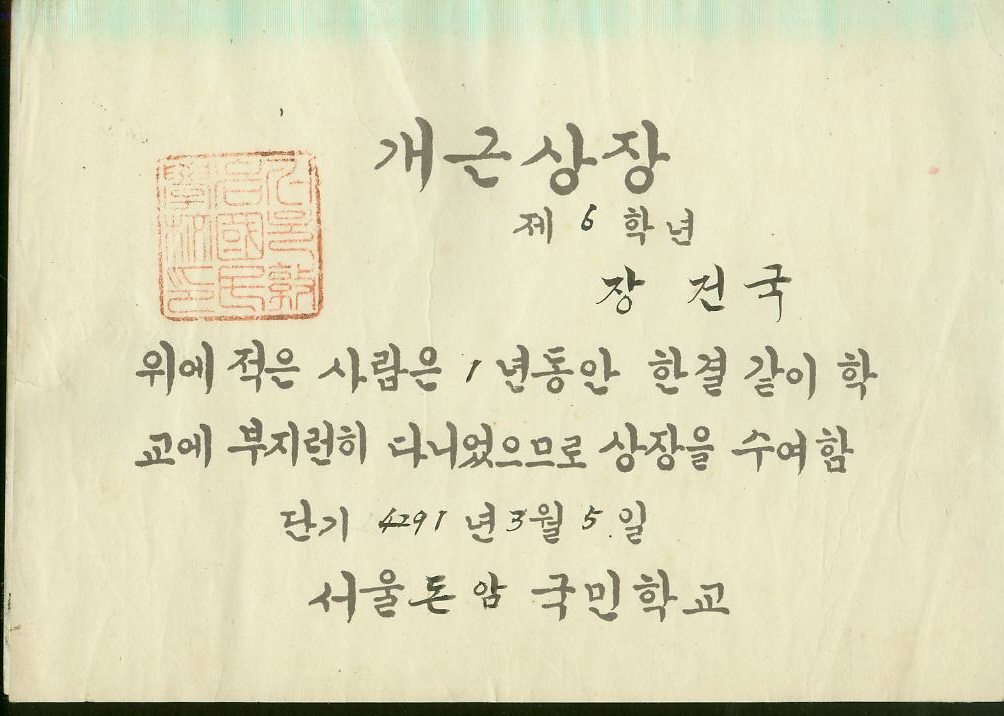 개근상장
제 6 학년
장 건국
서울敦
岩國民
學校印
위에 적은 사람은 1 년동안 한결 같이 학
교에 부지런히 다니었으므로 상장을 수여함
단기 4291 년 3월 5.일
서울돈암 국민학교